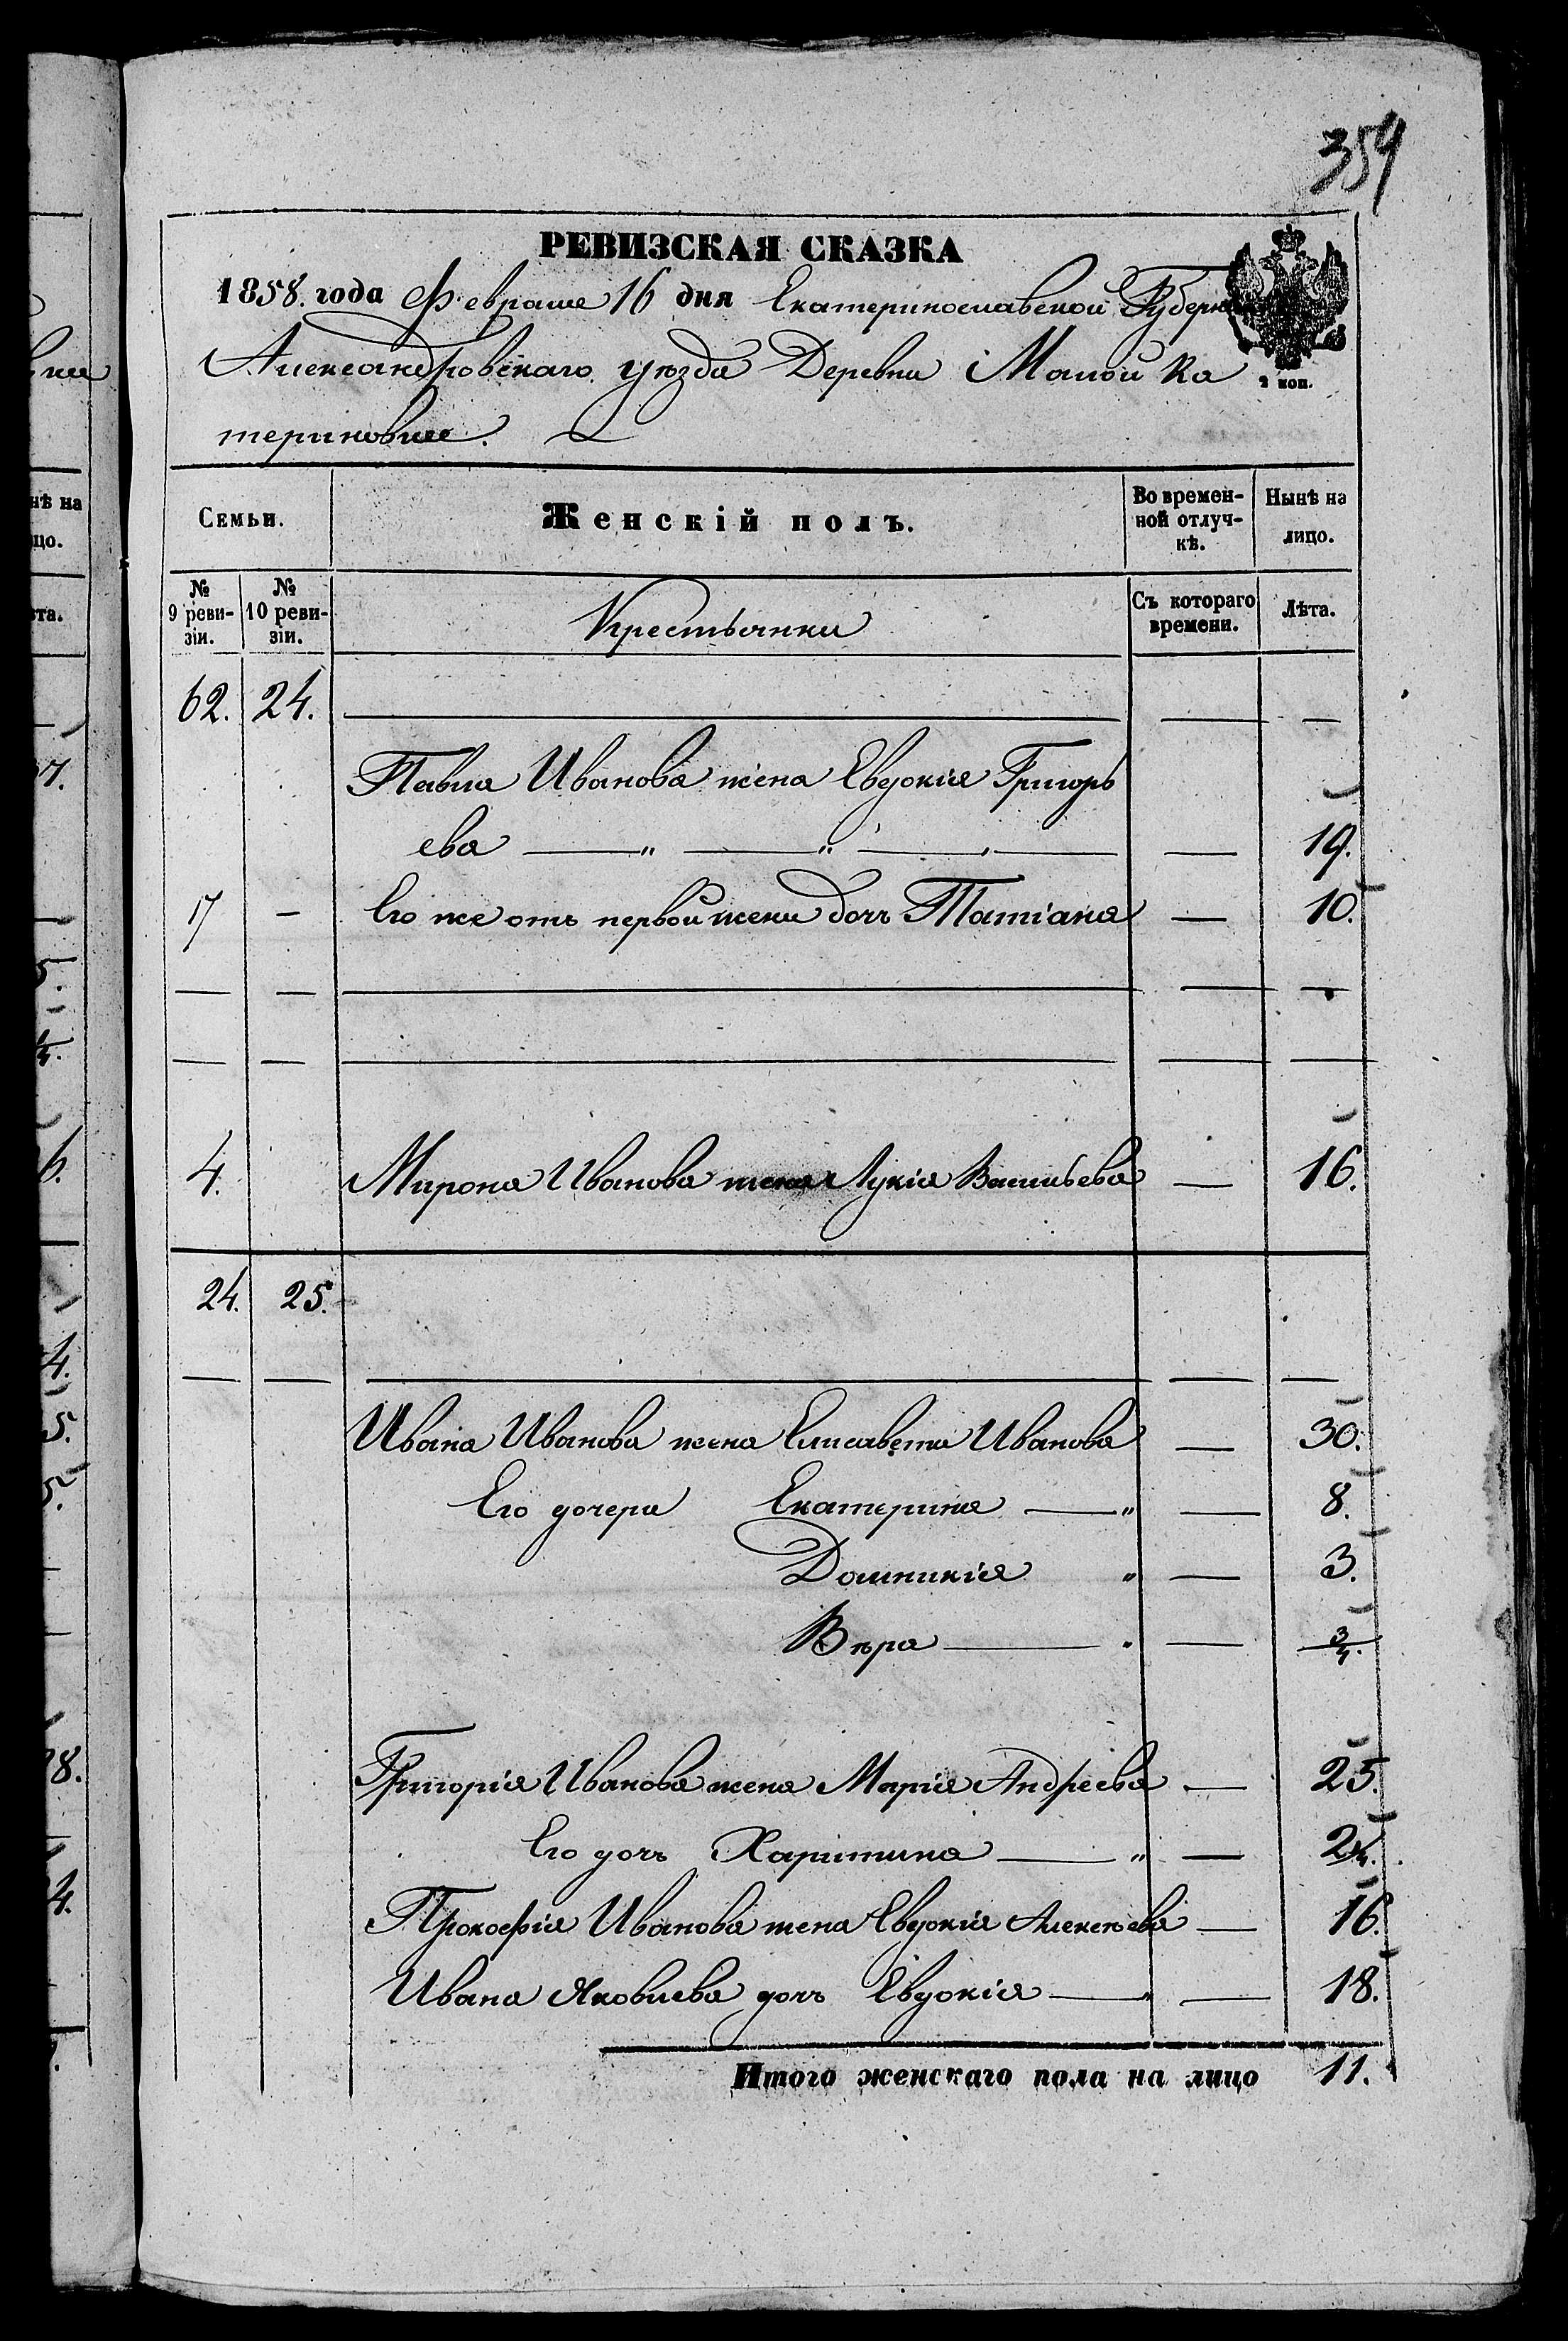 359
РЕВИЗСКАЯ СКАЗКА
1858. года Февраля 16 дня Екатеринославской Губерн
Александровскаго уѣзда Деревни Малой Ка
териновки.
2 коп.
Семьи. Женскій полъ. Во времен-ной отлуч-кѣ. Нынѣ на лицо.
№ 9 реви-зіи. № 10 реви-зіи. Крестьянки Съ котораго времени. Лѣта.
62. 24.
Павла Иванова жена Евдокія Григорь
ева 19.
17 Его же отъ первой жены дочь Татіана 10.
4. Мирона Иванова жена Лукія Васильева 16.
24. 25.
Ивана Иванова жена Елисавета Иванова 30.
Его дочери Екатерина 8.
Домникія 3.
Вѣра 3/4.
Григорія Иванова жена Марія Андреева 25.
Его дочь Харитина
Прокофія Иванова жена Евдокія Алексѣева 16.
Ивана Яковлева дочь Евдокія 18.
Итого женскаго пола на лицо 11.
нѣ на
цо.
ѣта.